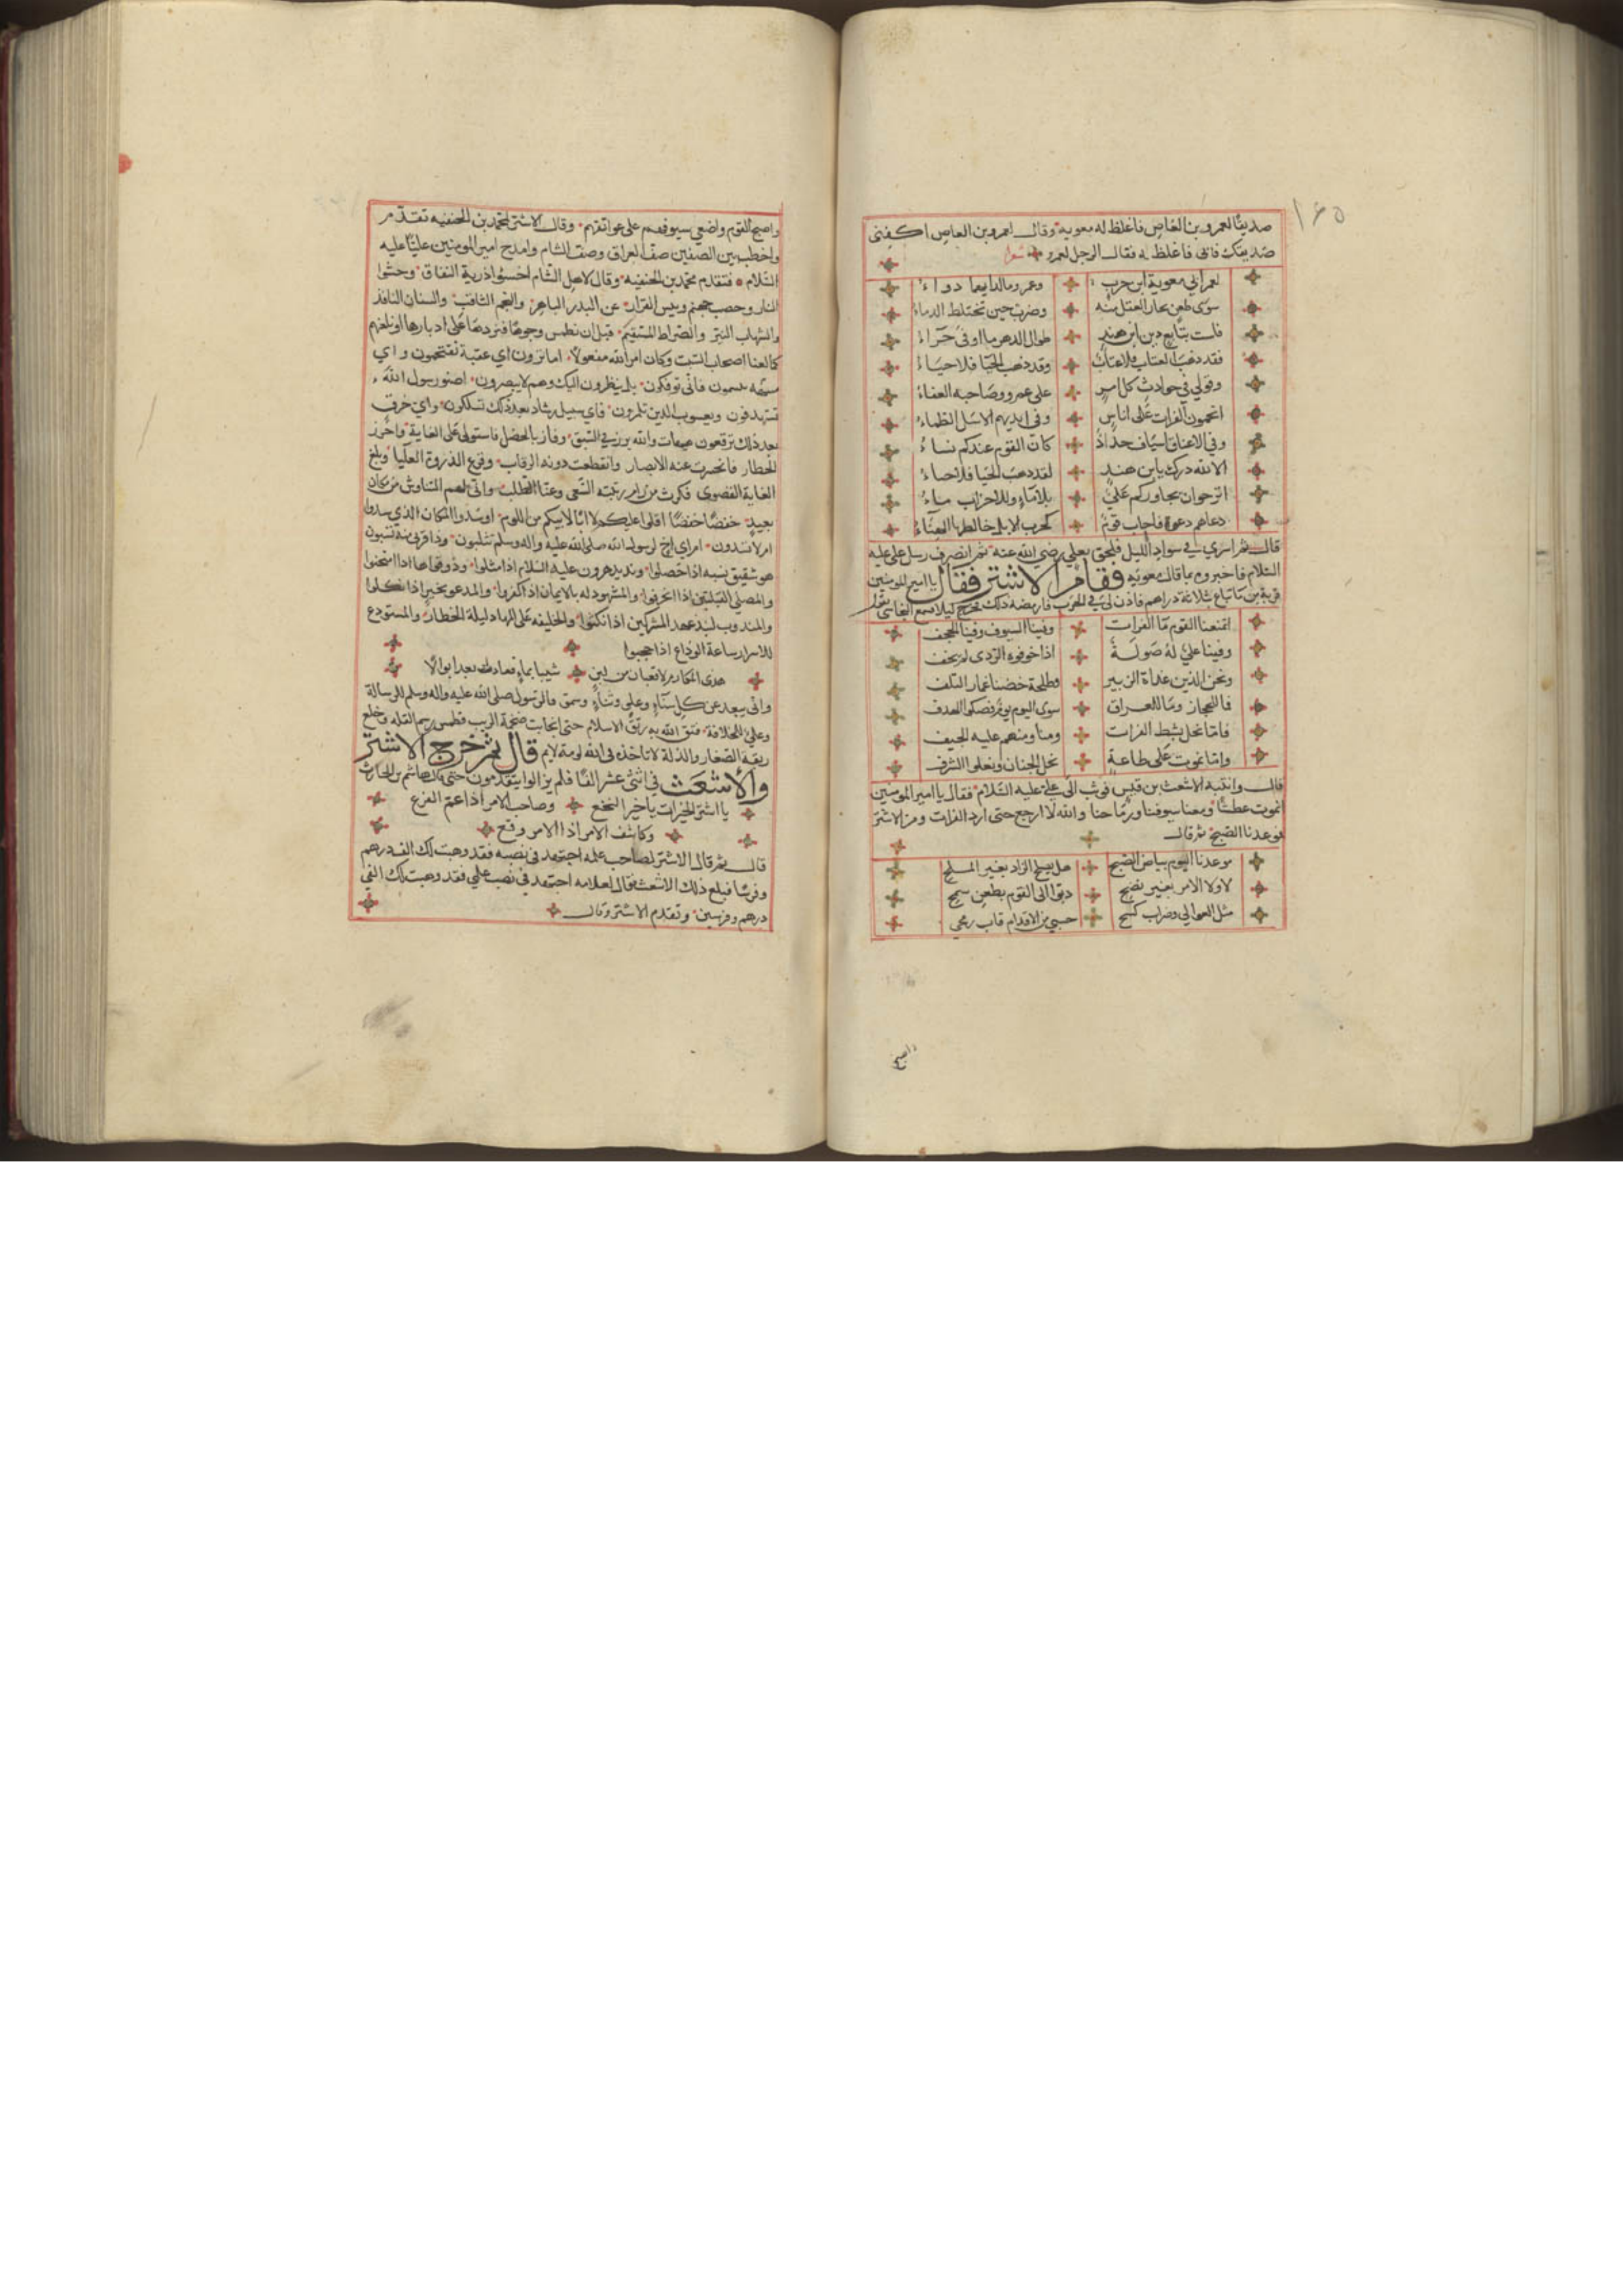 ١٦٥
صديقا لعمرو بن العاص فاغلظ له معوية وقال لعمرو بن العاص اكفنى
صديقك فانى فاغلظ له فقال الرجل لعمرو
لعمر ابي معوية ابن حرب وعمرو ما لدايهما دواء
سوى طعن يحار العقل منه وضرب حين تختلط الدماء
فلست بتابع دين ابن هند طوال الدهر ما اوفى حراء
فقد ذهب العتاب فلا عتاب وقد ذهب الحيا فلا حياء
وقولي في حوادث كل امر على عمرو وصاحبه العفاء
اتحمون الفرات على اناس وفى ايديهم الاسل الظماء
وفي الاعناق اسياف حداد كان القوم عندكم نساء
الا لله درك يا بن هند لقد ذهب الحيا فلا حياء
اترجوان يجاوركم علي بلا ماء وللاحزاب ماء
دعاهم دعوة فاجاب قوم كجرب الابل خالطها الهناء
قال ثم اسرى في سواد الليل فلحق بعلي رضي الله عنه ثم انصرف رسل على عليه
السلام فاخبروه بما قال معويه فقام الاشتر فقال يا امير المومنين
قربة من ماء تباع ثلاثة دراهم فاذن لي في الحرب
اتمنعنا القوم ماء الفرات وفينا السيوف وفينا الحجف
وفينا علي له صولة اذا خوفوه الردى لم يخف
ونحن الذين غداة الزبير وطلحة خضنا غمار التلف
فما للحجاز وما للعراق سوى اليوم يوم فصكوا الهدف
فاما نحل بشط الفرات ومنا ومنهم عليه الجيف
واما نموت على طاعة نحل الجنان ونعلوا الشرف
قال وانتبه الاشعث بن قيس فوثب الى على عليه السلام فقال يا امير المومنين
انموت عطشا ومعنا سيوفنا ورماحنا والله لا ارجع حتى ارد الفرات ومر الاشتر
موعدنا الصبح ثم قال
موعدنا اليوم بياض الصبح هل يصلح الزاد بغير الملح
لا ولا الامر بغير نصح دبوا الى القوم بطعن سمح
مثل العوالي وضراب كسح حسبي من الاقدام قاب رمحي
واصبح
واصبح القوم واضعي سيوفهم على عواتقهم وقال الاشتر لمحمد بن الحنفيه تقدم
واخطب بين الصفين صف العراق وصف الشام وامدح امير المومنين عليا عليه
السلام فتقدم محمد بن الحنفيه وقال لاهل الشام اخسئوا ذرية النفاق وحشوا
النار وحصب جهنم وبيس القرار عن البدر الباهر والنجم الثاقب والسنان النافذ
والشهاب النير والصراط المستقيم قبل ان نطمس وجوها فنردها على ادبارها او نلعنهم
كما لعنا اصحاب السبت وكان امر الله مفعولا اما ترون اي عقبة تقتحمون واي
فانى توفكون بل ينظرون اليك وهم لا يبصرون اصنو رسول الله
تستهدفون ويعسوب الدين تلمزون فاي سبيل رشاد بعد ذلك تسلكون واي خرق
بعد ذلك ترقعون هيهات والله برز في السبق وفاز بالخصل فاستولى على الغاية واحرز
الخطار فانحسرت عنه الابصار وانقطعت دونه الرقاب وفرع الذروة العليا وبلغ
الغاية القصوى فكرث من رام رتبته السعى وعناه الطلب وانى لهم التناوش من مكان
بعيد خفضا خفضا اقلوا عليكم لا ابا لابيكم من اللوم او سدوا المكان الذي سدوا
ام لا تسدون ام اي اخ لرسول الله صلى الله عليه واله وسلم تثلبون وذا قربى منه تسبون
هو شقيق نسبه اذا حصلوا ونديد هرون عليه السلام اذا مثلوا وذوقها اذا امتحنوا
والمصلي القبلتين اذا انحرفوا والمشهود له بالايمان اذ كفروا والمدعو بخيبر اذا نكلوا
والمندوب لنبذ عهد المشركين اذا نكثوا والخليفه على المهاد ليلة الخطار والمستودع
للاسرار ساعة الوداع اذا حجبوا
هذى المكارم لا قعبان من لبن شيبا بماء فعادت بعد ابوالا
وانى يبعد عن كل سناء وعلو وثناء وسمق مالرسول صلى الله عليه واله وسلم للرسالة
وعلي للخلافة فتق الله به رتق الاسلام حتى انجابت طخية الريب وخلع
ربقة الصغار والذلة لا تاخذه فى الله لومة لايم قال ثم خرج الاشتر
والاشعث في اثنى عشر الفا فلم يزالوا يتقدمون حتى هاشم بن الحارث
يا اشتر الخيرات يا خير النخع وصاحب الامر اذا عم الفزع
وكاشف الامر اذا الامر وقع
قال ثم قال الاشتر لصاحب علمه اجتهد فى نصبه فقد وهبت لك الف درهم
وفرسا فبلغ ذلك الاشعث فقال لغلامه اجتهد في نصب علمي فقد وهبت لك الفي
درهم وفرسين وتقدم الاشتر وقال